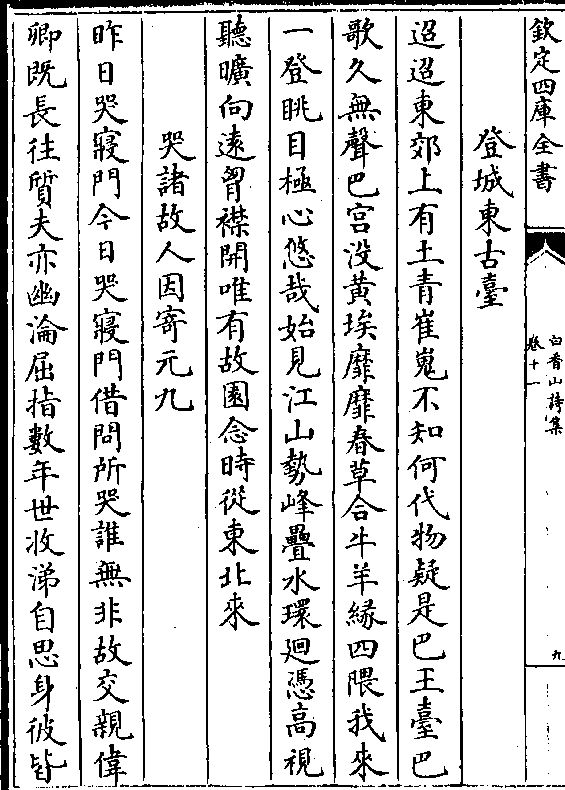 欽定四庫全書
白香山詩集
卷十一
九
登城東古臺
迢迢東郊上有土青崔嵬不知何代物疑是巴王臺巴
歌久無聲巴宮没黄埃靡靡春草合牛羊緣四隈我來
一登眺目極心悠哉始見江山勢峰疊水環廻憑高視
聽曠向遠胷襟開唯有故園念時從東北來
哭諸故人因寄元九
昨日哭寢門今日哭寢門借問所哭誰無非故交親偉
卿既長往質夫亦幽淪屈指數年世收涕自思身彼皆